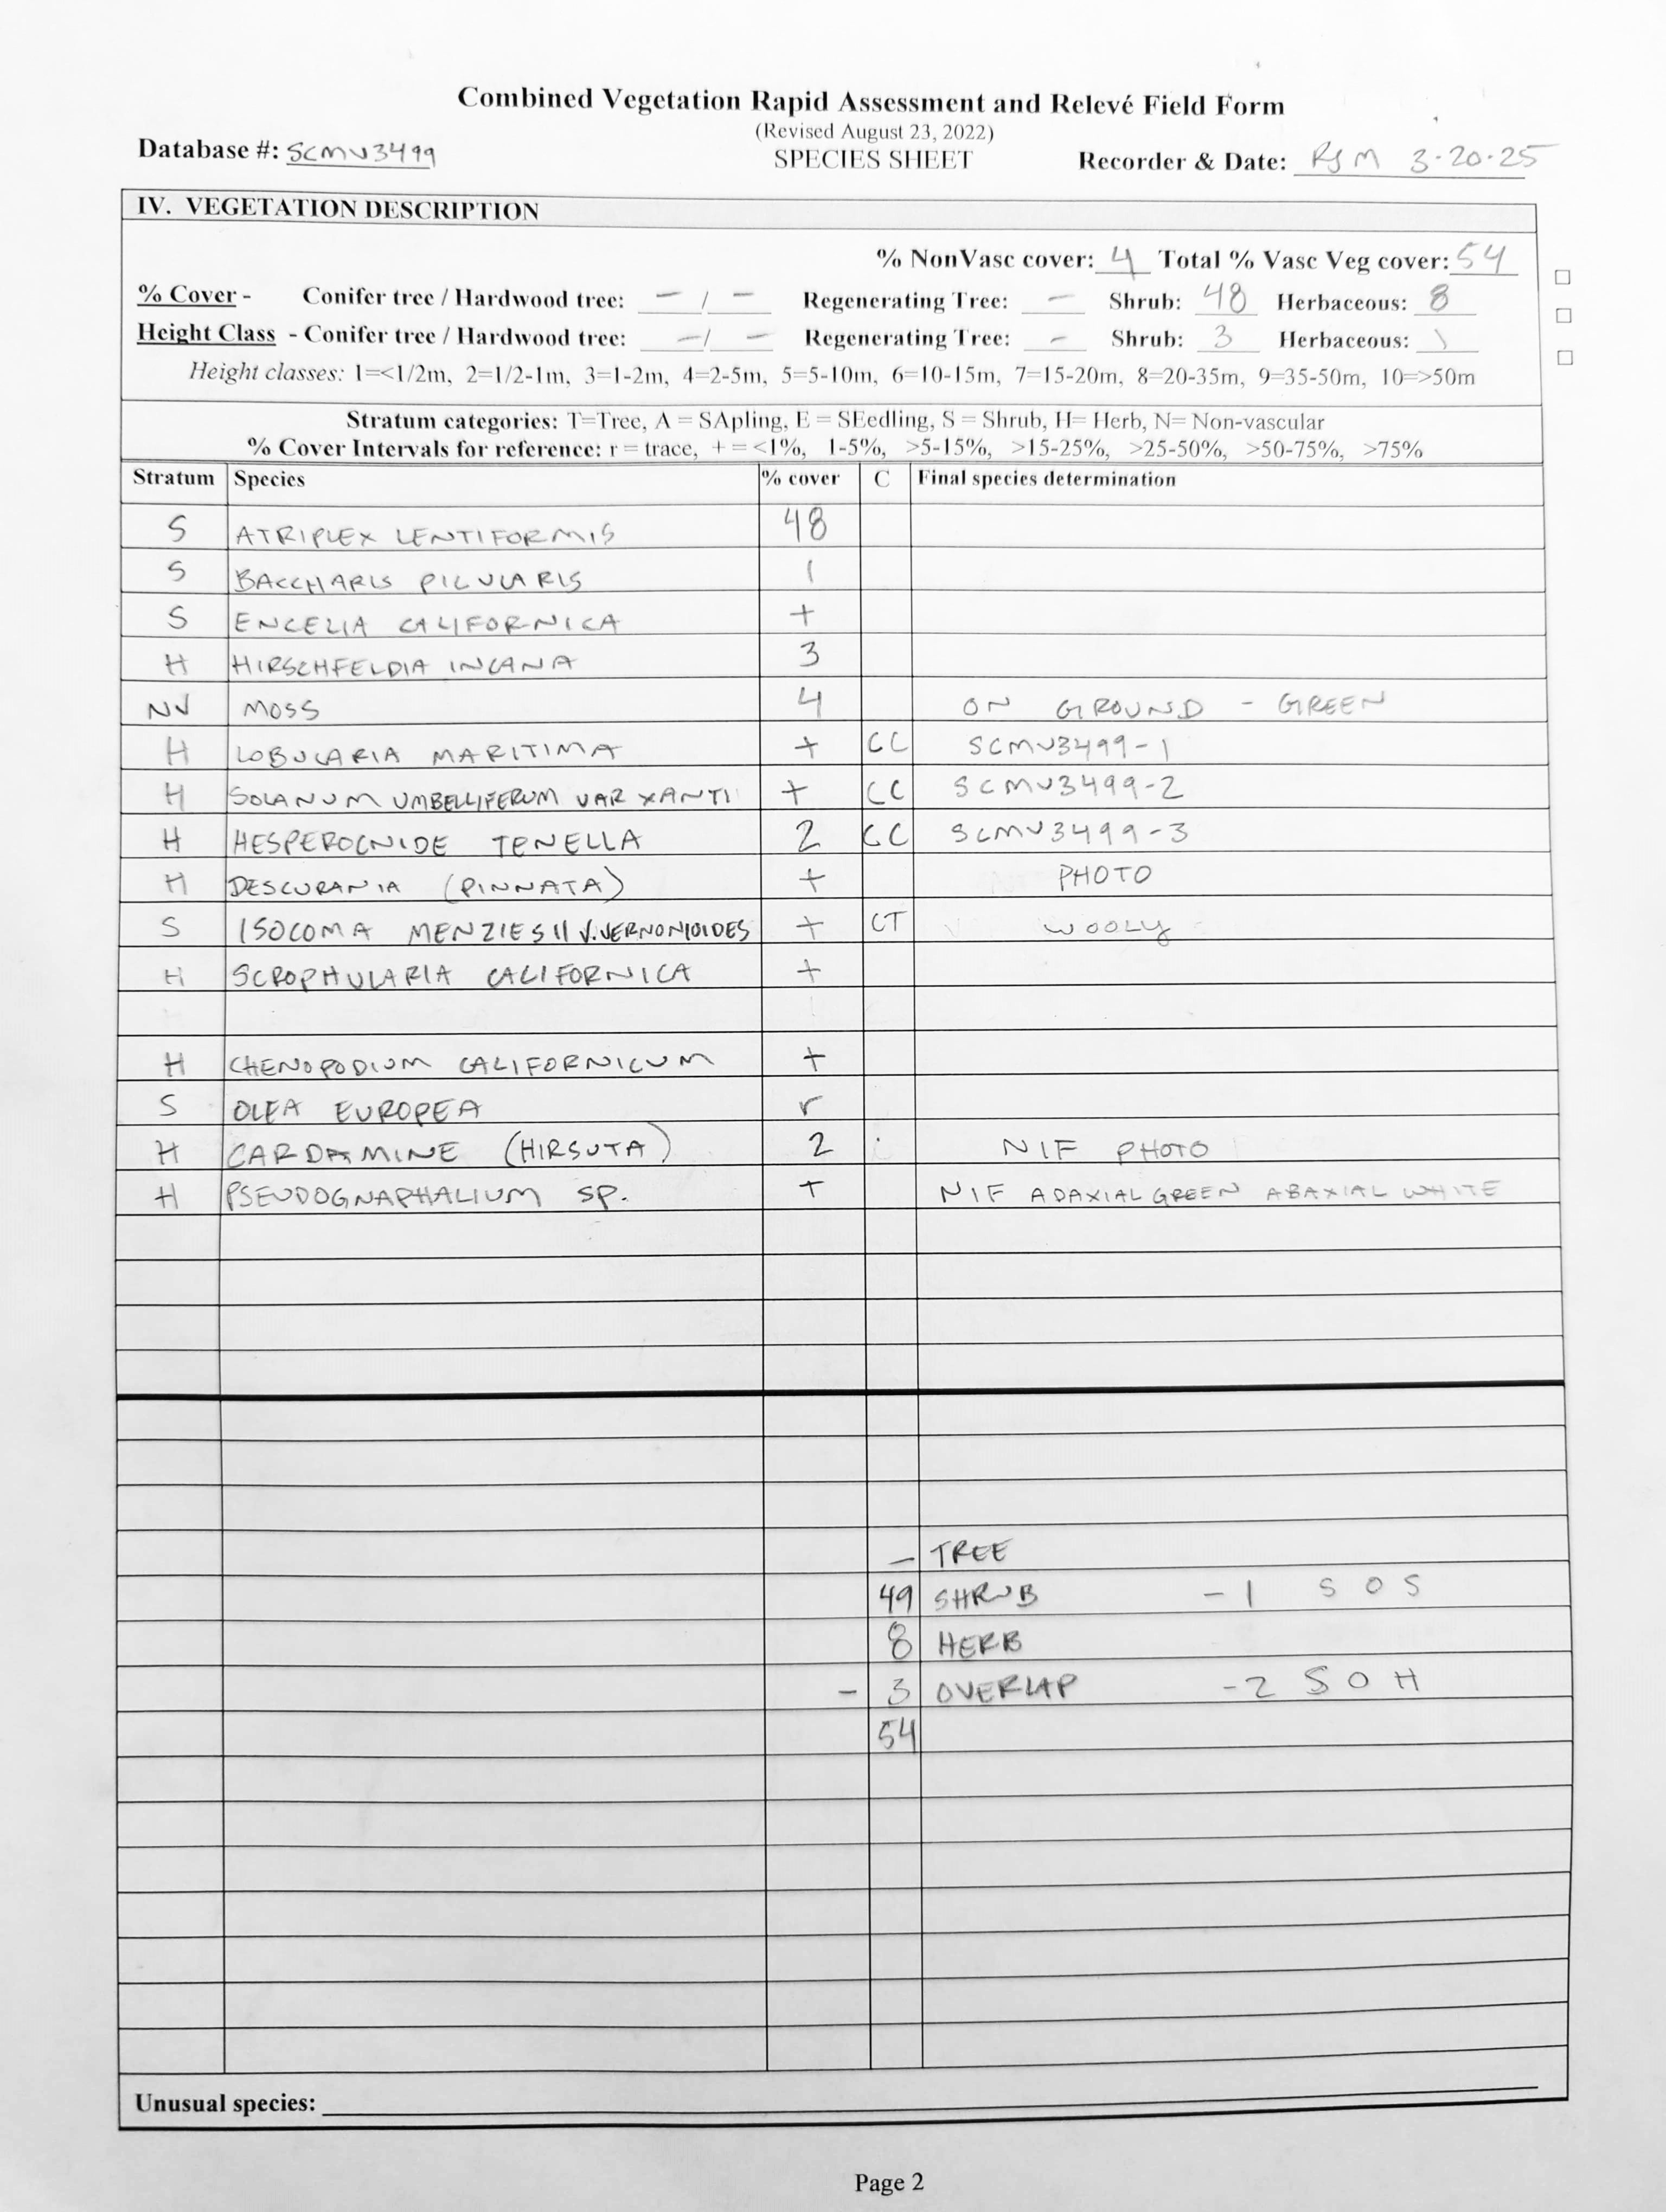 Combined Vegetation Rapid Assessment and Relevé Field Form
(Revised August 23, 2022)
Database #: SCMV3499 SPECIES SHEET Recorder & Date: RJM 3-20-25
IV. VEGETATION DESCRIPTION
% NonVasc cover: 4 Total % Vasc Veg cover: 54
% Cover - Conifer tree / Hardwood tree: - / - Regenerating Tree: - Shrub: 48 Herbaceous: 8
Height Class - Conifer tree / Hardwood tree: - / - Regenerating Tree: - Shrub: 3 Herbaceous: 1
Height classes: 1=<1/2m, 2=1/2-1m, 3=1-2m, 4=2-5m, 5=5-10m, 6=10-15m, 7=15-20m, 8=20-35m, 9=35-50m, 10=>50m
Stratum categories: T=Tree, A = SApling, E = SEedling, S = Shrub, H= Herb, N= Non-vascular
% Cover Intervals for reference: r = trace, + = <1%, 1-5%, >5-15%, >15-25%, >25-50%, >50-75%, >75%
Stratum Species % cover C Final species determination
S ATRIPLEX LENTIFORMIS 48
S BACCHARIS PILULARIS 1
S ENCELIA CALIFORNICA +
H HIRSCHFELDIA INCANA 3
NV MOSS 4 ON GROUND - GREEN
H LOBULARIA MARITIMA + CC SCMV3499-1
H SOLANUM UMBELLIFERUM VAR XANTI + CC SCMV3499-2
H HESPEROCNIDE TENELLA 2 CC SCMV3499-3
H DESCURANIA (PINNATA) + PHOTO
S ISOCOMA MENZIESII V. VERNONIOIDES + CT WOOLY
H SCROPHULARIA CALIFORNICA +
H CHENOPODIUM CALIFORNICUM +
S OLEA EUROPEA r
H CARDAMINE (HIRSUTA) 2 NIF PHOTO
H PSEUDOGNAPHALIUM SP. + NIF ADAXIAL GREEN ABAXIAL WHITE
- TREE
49 SHRUB -1 S O S
8 HERB
- 3 OVERLAP -2 S O H
54
Unusual species:
Page 2